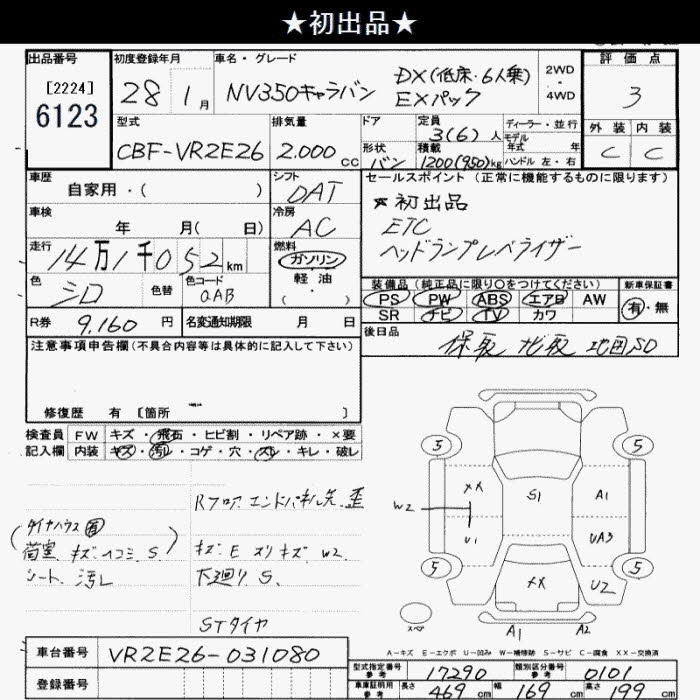 ★初出品★
出品番号
[2224]
6123
初度登録年月
28 1月
車名・グレード
NV350キャラバン
DX(低床・6人乗)
EXパック
2WD
・
4WD
評価点
3
外装 内装
C C
型式
CBF-VR2E26
排気量
2.000cc
ドア
形状
バン
定員
3(6)人
積載
1200(950)kg
ディーラー・並行
モデル
年式 年
ハンドル 左・右
車歴
自家用・( )
シフト
DAT
車検
年 月( 日)
冷房
AC
走行
14万1千052km
燃料
ガソリン
軽油
( ・ )
色
シロ
色替
色コード
QAB
R券 9.160円
名変通知期限 月 日
セールスポイント(正常に機能するものに限ります)
★初出品
ETC
ヘッドランプレベライザー
装備品(純正品に限り○をつけてください)
新車保証書
PS PW ABS エアB AW
SR ナビ TV カワ
有・無
後日品
保取 地図SD
注意事項申告欄(不具合内容等は具体的に記入して下さい)
修復歴 有 [箇所 ]
検査員 FW キズ・飛石・ヒビ割・リペア跡・×要
記入欄 内装 キズ・汚レ・コゲ・穴・スレ・キレ・破レ
Rフロア.エンドパネル先.歪
(タイヤハウス
荷室.キズ.ヘコミ.S.)
シート.汚レ
キズ.E スリキズ W2
下廻り.S.
STタイヤ
5 5
XX S1 A1
W2
U1 UA3
5 5
XX U2
スペア
A1 A2
A-キズ E-エクボ U-凹み W-補修跡 S-サビ C-腐食 XX-交換済
車台番号 VR2E26-031080
登録番号
型式指定番号
参考
17290
類別区分番号
参考
0101
車庫証明用
参考
長さ 469cm 幅 169cm 高さ 199cm